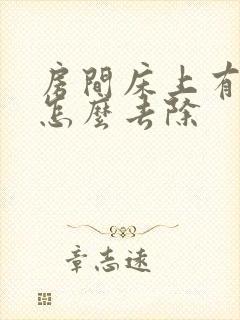 房間床上有
怎麼去除
章志遠